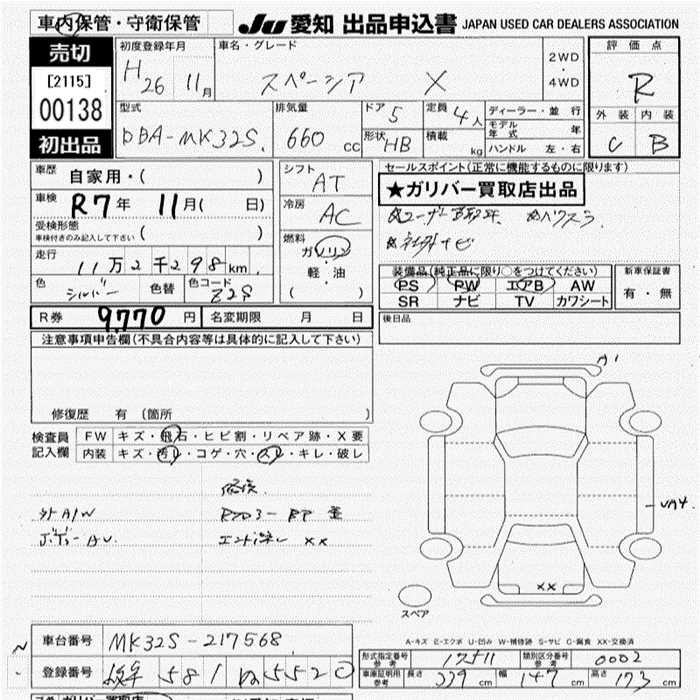 車内保管・守衛保管
JU 愛知 出品申込書 JAPAN USED CAR DEALERS ASSOCIATION
売切
[2115]
00138
初出品
初度登録年月
H26 11月
車名・グレード
スペーシア X
2WD
・
4WD
評価点
R
外装 内装
C B
型式
DBA-MK32S
排気量
660 cc
ドア 5
形状 HB
定員 4人
積載 kg
ディーラー・並行
モデル年式 年
ハンドル 左・右
車歴 自家用・( )
車検 R7年 11月( 日)
受検形態
車検付きのみ記入して下さい ( )
走行
11万2千298km
色 シルバー 色替 色コード Z2S
シフト
AT
冷房
AC
燃料
ガソリン
・
軽・油
( )
セールスポイント(正常に機能するものに限ります)
★ガリバー買取店出品
☆ユーザー買取車
☆ナビ
装備品(純正品に限り○をつけてください)
PS PW エアB AW
SR ナビ TV カワシート
新車保証書
有・無
後日品
R券 9,770円 名変期限 月 日
注意事項申告欄(不具合内容等は具体的に記入して下さい)
修復歴 有 (箇所 )
検査員
記入欄
FW キズ・飛石・ヒビ割・リペア跡・X要
内装 キズ・汚れ・コゲ・穴・スレ・キレ・破レ
修復
外A/W
ボデーAU
エンドパネル XX
A1
XX
スペア
A-キズ E-エクボ U-凹み W-補修跡 S-サビ C-腐食 XX-交換済
車台番号 MK32S-217568
登録番号 581 5520
形式指定番号
参考
類別区分番号
参考
0002
車庫証明用
参考
長さ 339cm 幅 147cm 高さ 173cm